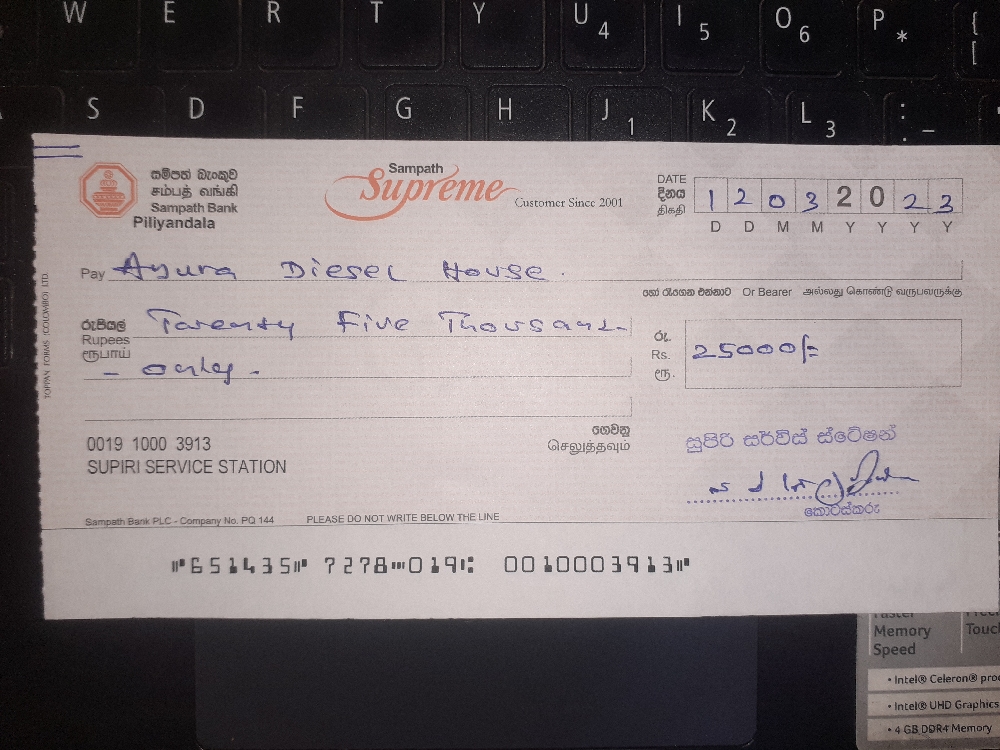 W E R T Y U 4 I 5 O 6 P * { [
S D F G H J 1 K 2 L 3 : _
සම්පත් බැංකුව
சம்பத் வங்கி
Sampath Bank
Piliyandala
Sampath
Supreme
Customer Since 2001
DATE
දිනය
திகதி
1 2 0 3 2 0 2 3
D D M M Y Y Y Y
Pay Ayura Diesel House.
හෝ රැගෙන එන්නාට Or Bearer அல்லது கொண்டு வருபவருக்கு
රුපියල් Twenty Five Thousand
Rupees
ரூபாய் - only -
රු.
Rs. 25000/=
ரூ.
TOPPAN FORMS (COLOMBO) LTD.
ගෙවනු
செலுத்தவும்
0019 1000 3913
SUPIRI SERVICE STATION
සුපිරි සර්විස් ස්ටේෂන්
Sampath Bank PLC - Company No. PQ 144 PLEASE DO NOT WRITE BELOW THE LINE
⑈651435⑈ 7278⑉019⑆ 0010003913⑈
Faster
Memory
Speed
Touc
• Intel® Celeron® proc
• Intel® UHD Graphics
• 4 GB DDR4 Memory